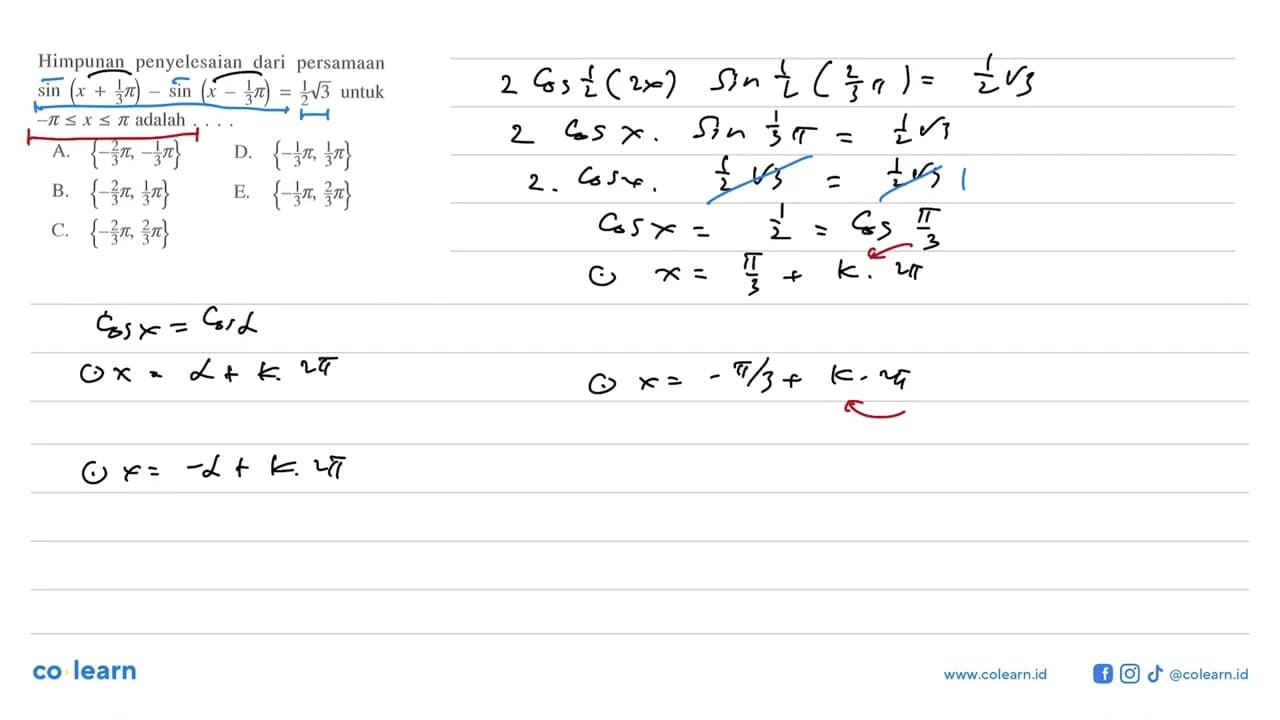 Himpunan penyelesaian dari persamaan
sin (x + 1/3 π) − sin (x − 1/3 π) = 1/2 √3 untuk
−π ≤ x ≤ π adalah . . . .
A. {−2/3 π, −1/3 π} D. {−1/3 π, 1/3 π}
B. {−2/3 π, 1/3 π} E. {−1/3 π, 2/3 π}
C. {−2/3 π, 2/3 π}
2 Cos 1/2 (2x) Sin 1/2 (2/3 π) = 1/2 √3
2 Cos x. Sin 1/3 π = 1/2 √3
2. Cos x. 1/2 √3 = 1/2 √3 1
Cos x = 1/2 = Cos π/3
⊙ x = π/3 + k. 2π
⊙ x = - π/3 + k. 2π
Cos x = Cos α
⊙ x = α + k. 2π
⊙ x = -α + k. 2π
co learn
www.colearn.id
@colearn.id